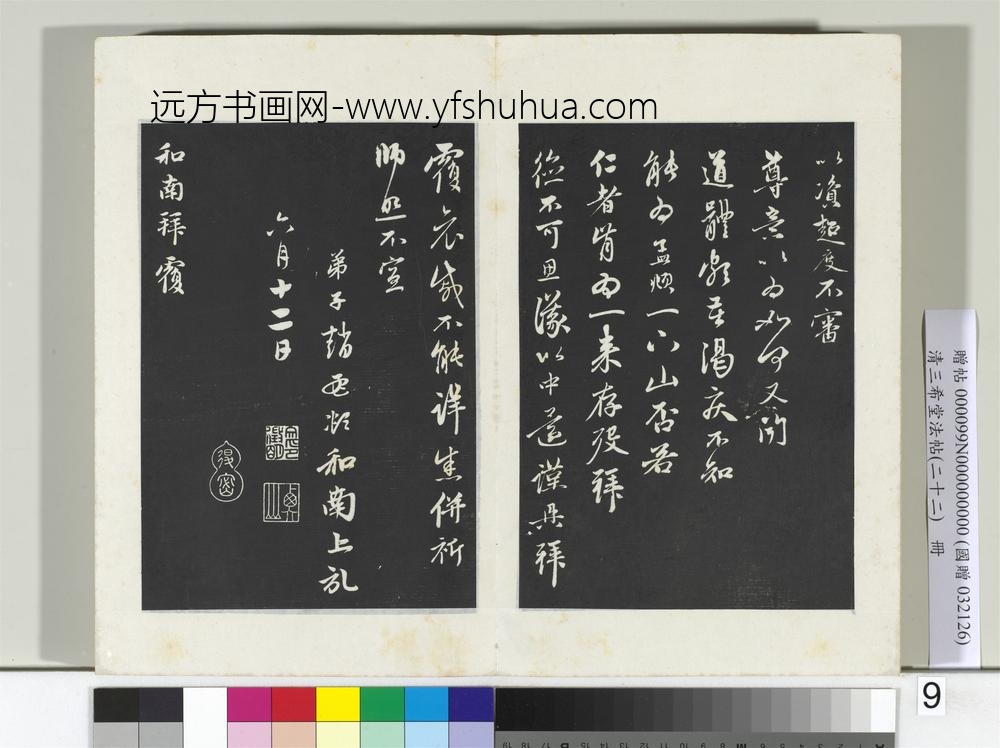 远方书画网-www.yfshuhua.com
以資超度不審
尊意以为如何又聞
道體頗苦渴疾不知
能为孟頫一下山否若
仁者肯为一来存殁拜
德不可思議以中還謹具拜
覆哀感不能詳悉併祈
師照不宣
弟子趙孟頫和南上
六月十二日
和南拜覆
贈帖 000099N000000000 (國贈 032126)
清三希堂法帖(二十二) 冊
9